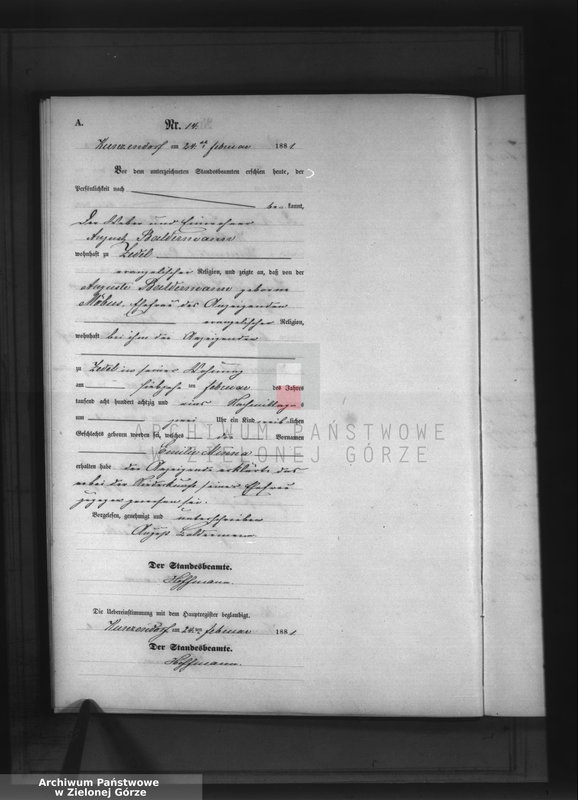 A.
Nr. 14.
Kunzendorf am 24ten Februar 1881
Vor dem unterzeichneten Standesbeamten erschien heute, der
Persönlichkeit nach
be kannt,
der Weber und Einwohner
August Baldermann
wohnhaft zu Zedel
evangelischer Religion, und zeigte an, daß von der
Auguste Baldermann geborene
Möbus, Ehefrau des Anzeigenden
evangelischer Religion,
wohnhaft bei ihm der Anzeigenden
zu Zedel in seiner Wohnung
am siebzehnten Februar des Jahres
tausend acht hundert achtzig und eins Nachmittags
um zwei Uhr ein Kind weiblichen
Geschlechts geboren worden sei, welches die Vornamen
Emilie Minna
erhalten habe der Anzeigende erklärte das
er bei der Niederkunft seiner Ehefrau
zugegen gewesen sei.
Vorgelesen, genehmigt und unterschrieben
August Baldermann
Der Standesbeamte.
Hoffmann.
Die Uebereinstimmung mit dem Hauptregister beglaubigt.
Kunzendorf am 24ten Februar 1881
Der Standesbeamte.
Hoffmann.
ARCHIWUM PAŃSTWOWE
W ZIELONEJ GÓRZE
Archiwum Państwowe
w Zielonej Górze